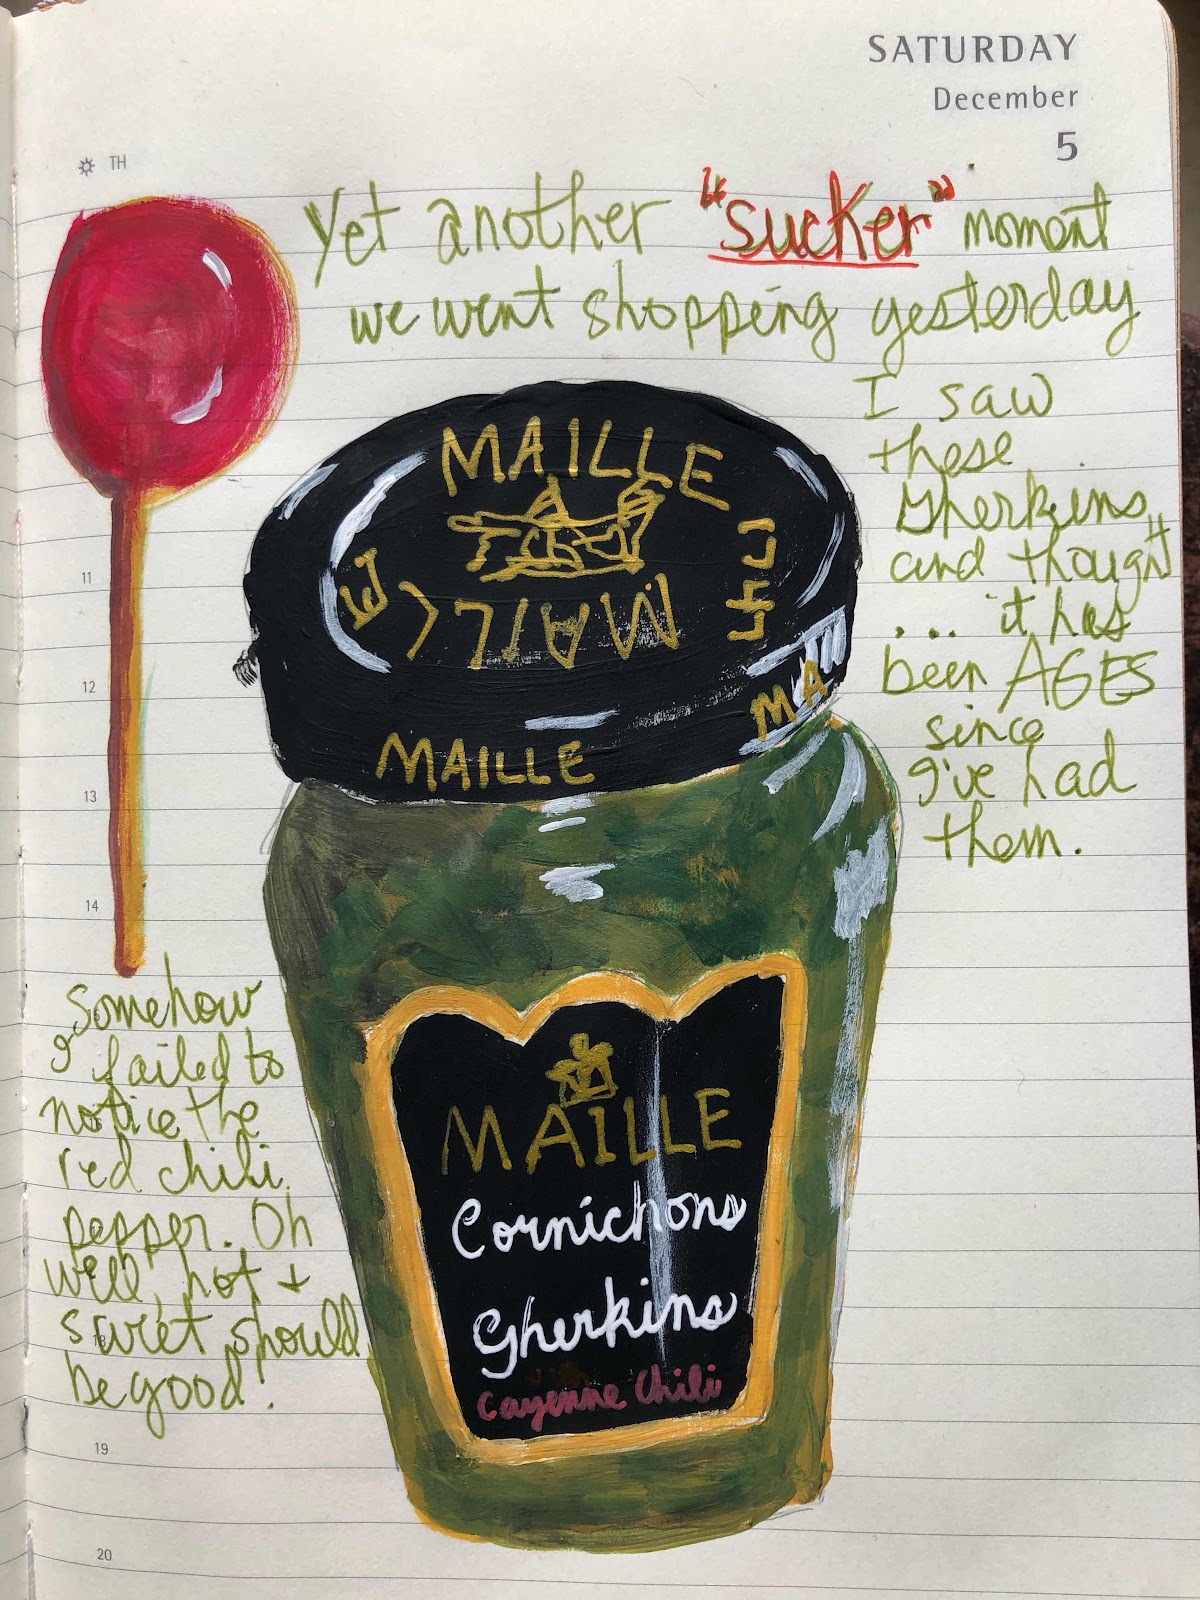 SATURDAY
December
5
TH
Yet another "sucker" moment
we went shopping yesterday
I saw
these
gherkins
and thought
... it has
been AGES
since
I've had
them.
MAILLE
MAILLE
MAILLE
MA
MAILLE
Cornichons
Gherkins
with
Cayenne Chili
11
12
13
14
Somehow
I failed to
notice the
red chili
pepper. Oh
well, hot +
sweet should
be good!
19
20